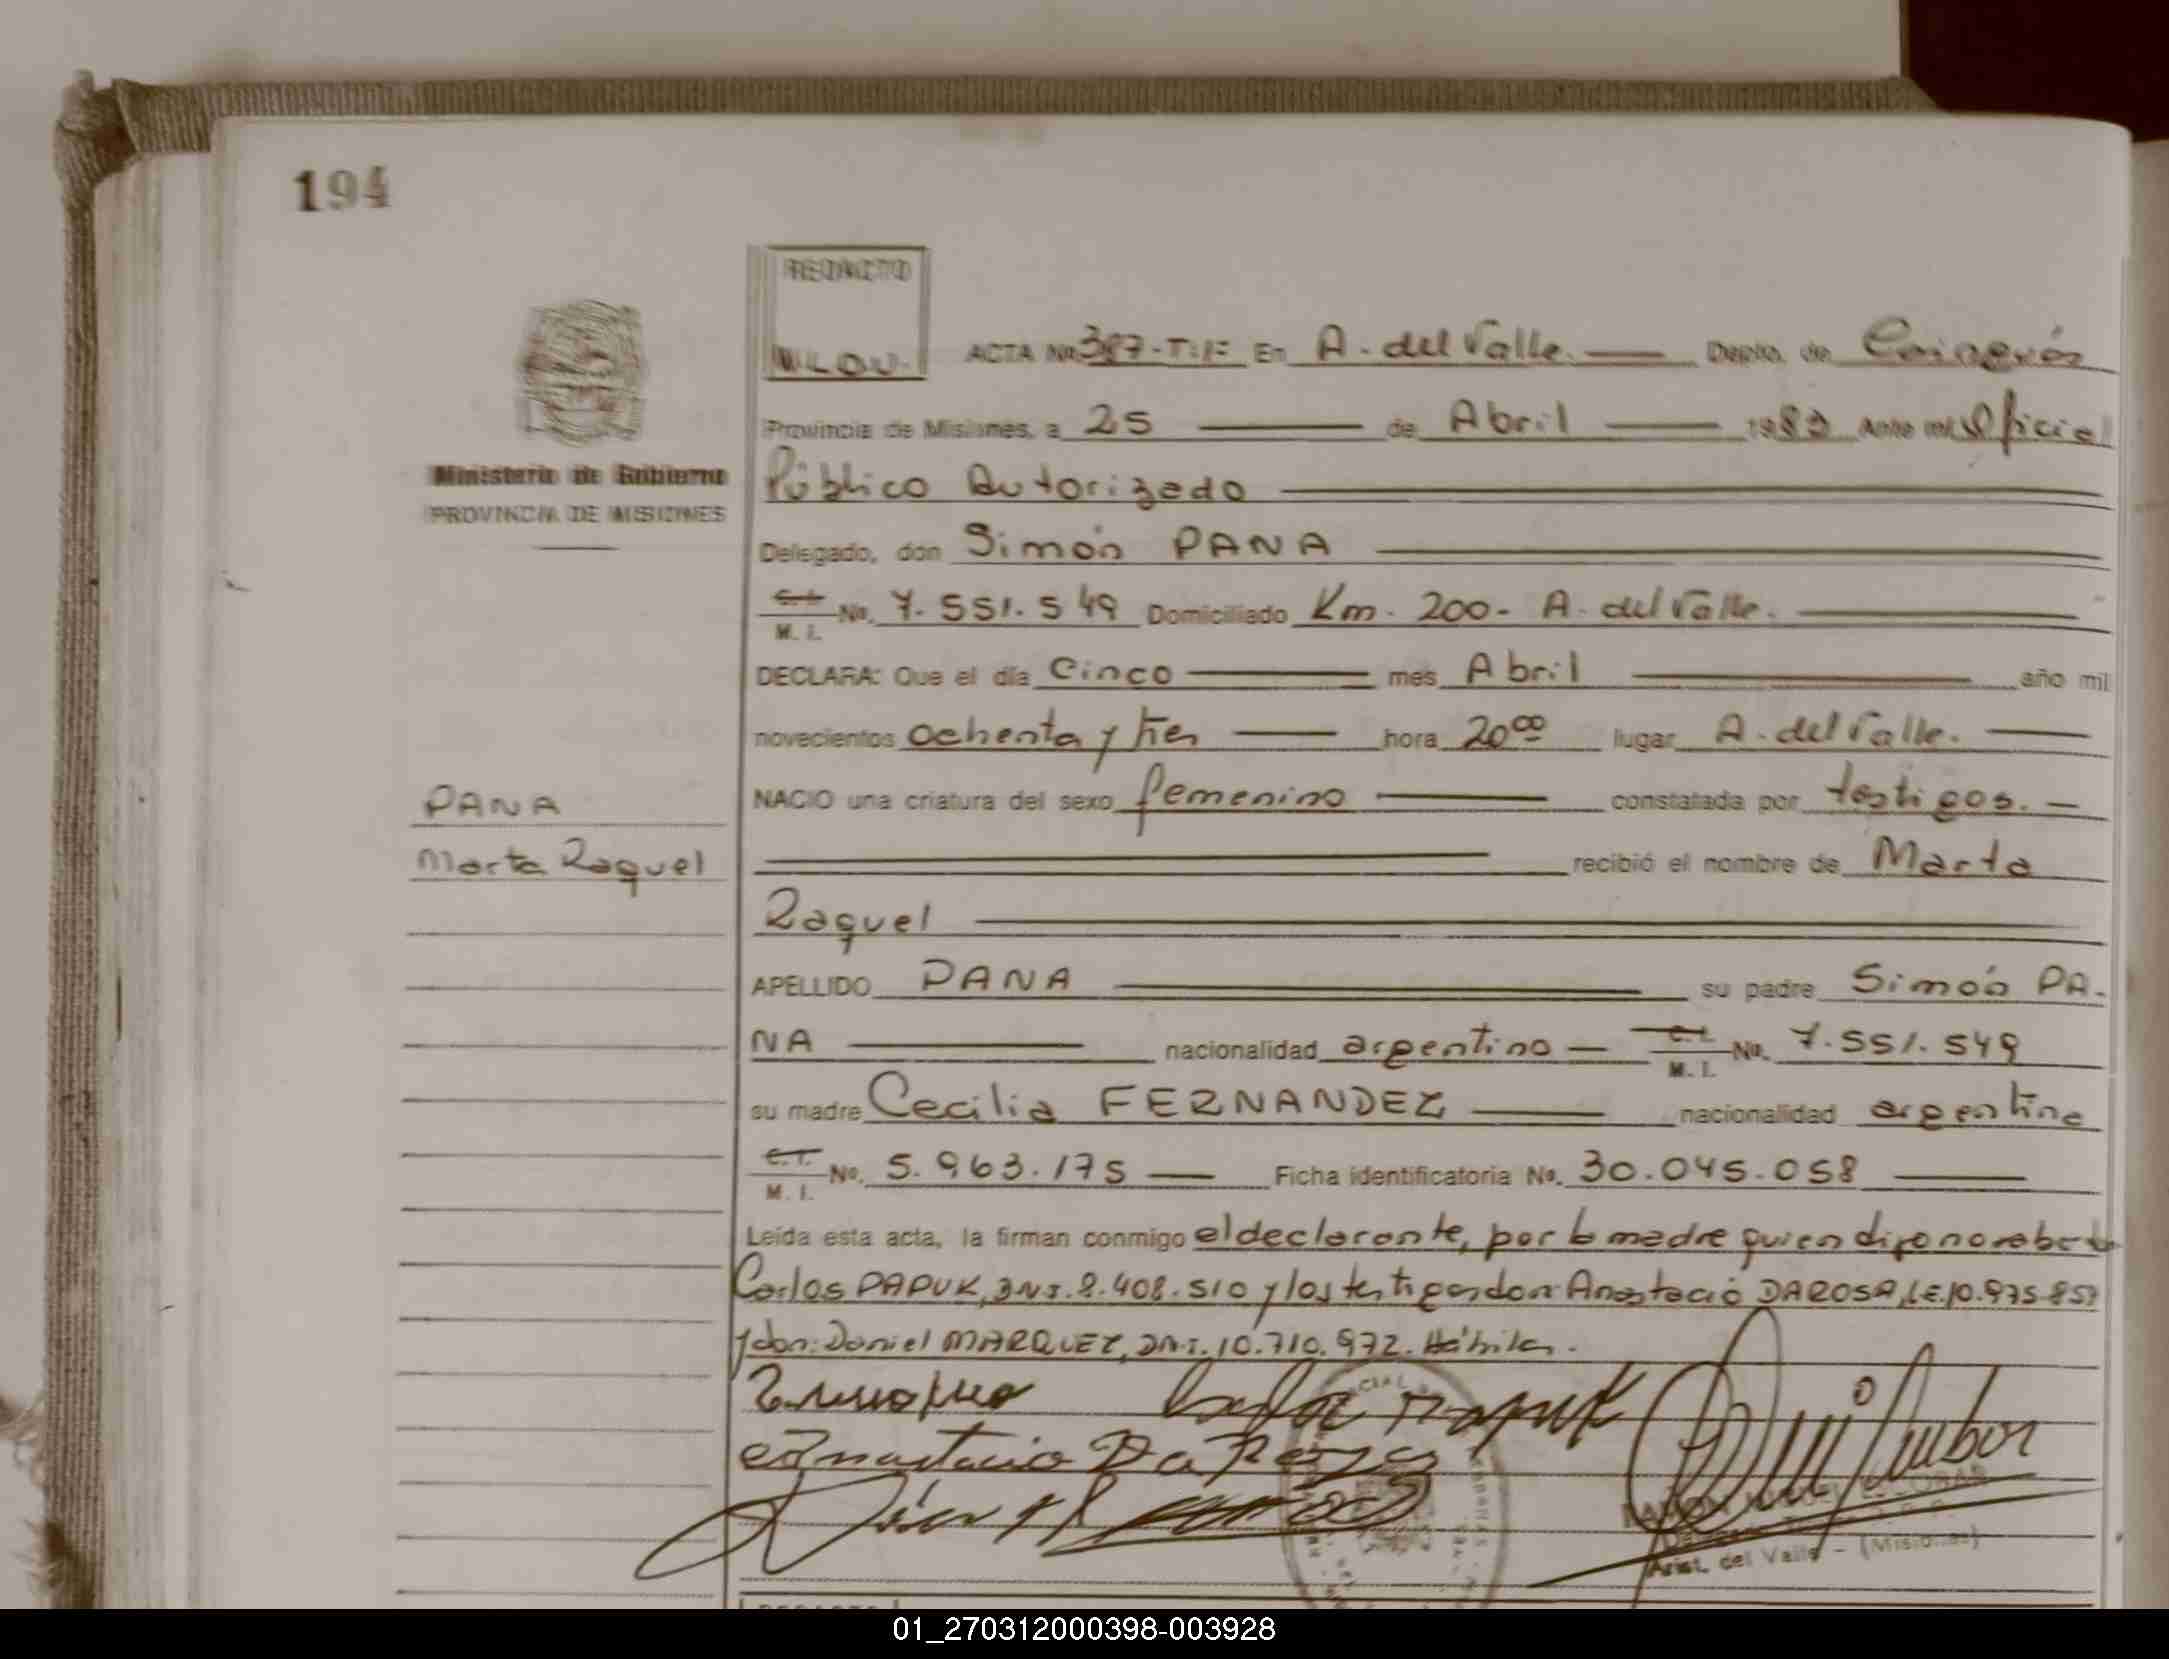 194
REDACTO
ACTA No. 387-T:1= En A. del Valle. Depto. de Cainguás
Provincia de Misiones, a 25 de Abril 1983 Ante mí Oficial
Ministerio de Gobierno
PROVINCIA DE MISIONES
Público Autorizado
Delegado, don Simón PANA
C.I. M. I. No. 7.551.549 Domiciliado Km. 200- A. del Valle.
DECLARA: Que el día Cinco mes Abril año mil
novecientos ochenta y tres hora 20 00 lugar A. del Valle.
NACIO una criatura del sexo femenino constatada por testigos.
PANA
Marta Raquel
recibió el nombre de Marta
Raquel
APELLIDO PANA su padre Simón PA-
NA nacionalidad argentino C.I. M. I. No. 7.551.549
su madre Cecilia FERNANDEZ nacionalidad argentina
C.I. M. I. No. 5.963.175 Ficha identificatoria No. 30.045.058
Leída esta acta, la firman conmigo el declarante, por la madre quien dijo no saber
Carlos PAPUK, DNI. 8.408.510 y los testigos don: Anastacio DAROSA, LE. 10.975.857
y don: Daniel MARQUEZ, DNI. 10.710.972. Hábiles.
Papuk
Anastacio Da Roza
Arist. del Valle - (Misiones)
01_270312000398-003928